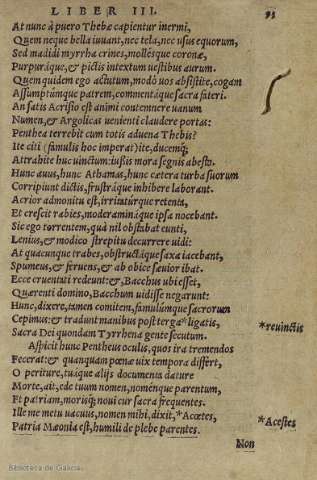 LIBER III. 93
At nunc à puero Thebæ capientur inermi,
Quem neque bella iuuant, nec tela, nec usus equorum,
Sed madidi myrrha crines, mollésque coronæ,
Purpuráque, & pictis intextum uestibus aurum.
Quem quidem ego actutum, modò uos absistite, cogam
Assumptúmque patrem, commentáque sacra fateri.
An satis Acrisio est animi contemnere uanum
Numen, & Argolicas uenienti claudere portas:
Penthea terrebit cum totis aduena Thebis?
Ite citi (famulis hoc imperat) ite, ducemq;
Attrahite huc uinctum: iussis mora segnis abesto.
Hunc auus, hunc Athamas, hunc cætera turba suorum
Corripiunt dictis, frustráque inhibere laborant.
Acrior admonitu est, irritatúrque retenta,
Et crescit rabies, moderamináque ipsa nocebant.
Sic ego torrentem, quà nil obstabat eunti,
Lenius, & modico strepitu decurrere uidi:
At quacunque trabes, obstructáque saxa iacebant,
Spumeus, & feruens, & ab obice sæuior ibat.
Ecce cruentati redeunt: &, Bacchus ubi esset,
Quærenti domino, Bacchum uidisse negarunt:
Hunc, dixere, tamen comitem, famulúmque sacrorum
Cepimus: & tradunt manibus post terga* ligatis,
*reuinctis
Sacra Dei quondam Tyrrhena gente secutum.
Aspicit hunc Pentheus oculis, quos ira tremendos
Fecerat: & quanquam pœnæ uix tempora differt,
O periture, tuáque alijs documenta dature
Morte, ait, ede tuum nomen, noménque parentum,
Et patriam, morisq; noui cur sacra frequentes.
Ille metu uacuus, nomen mihi, dixit, *Acœtes,
*Acestes
Patria Mæonia est, humili de plebe parentes.
Non
Biblioteca de Galicia